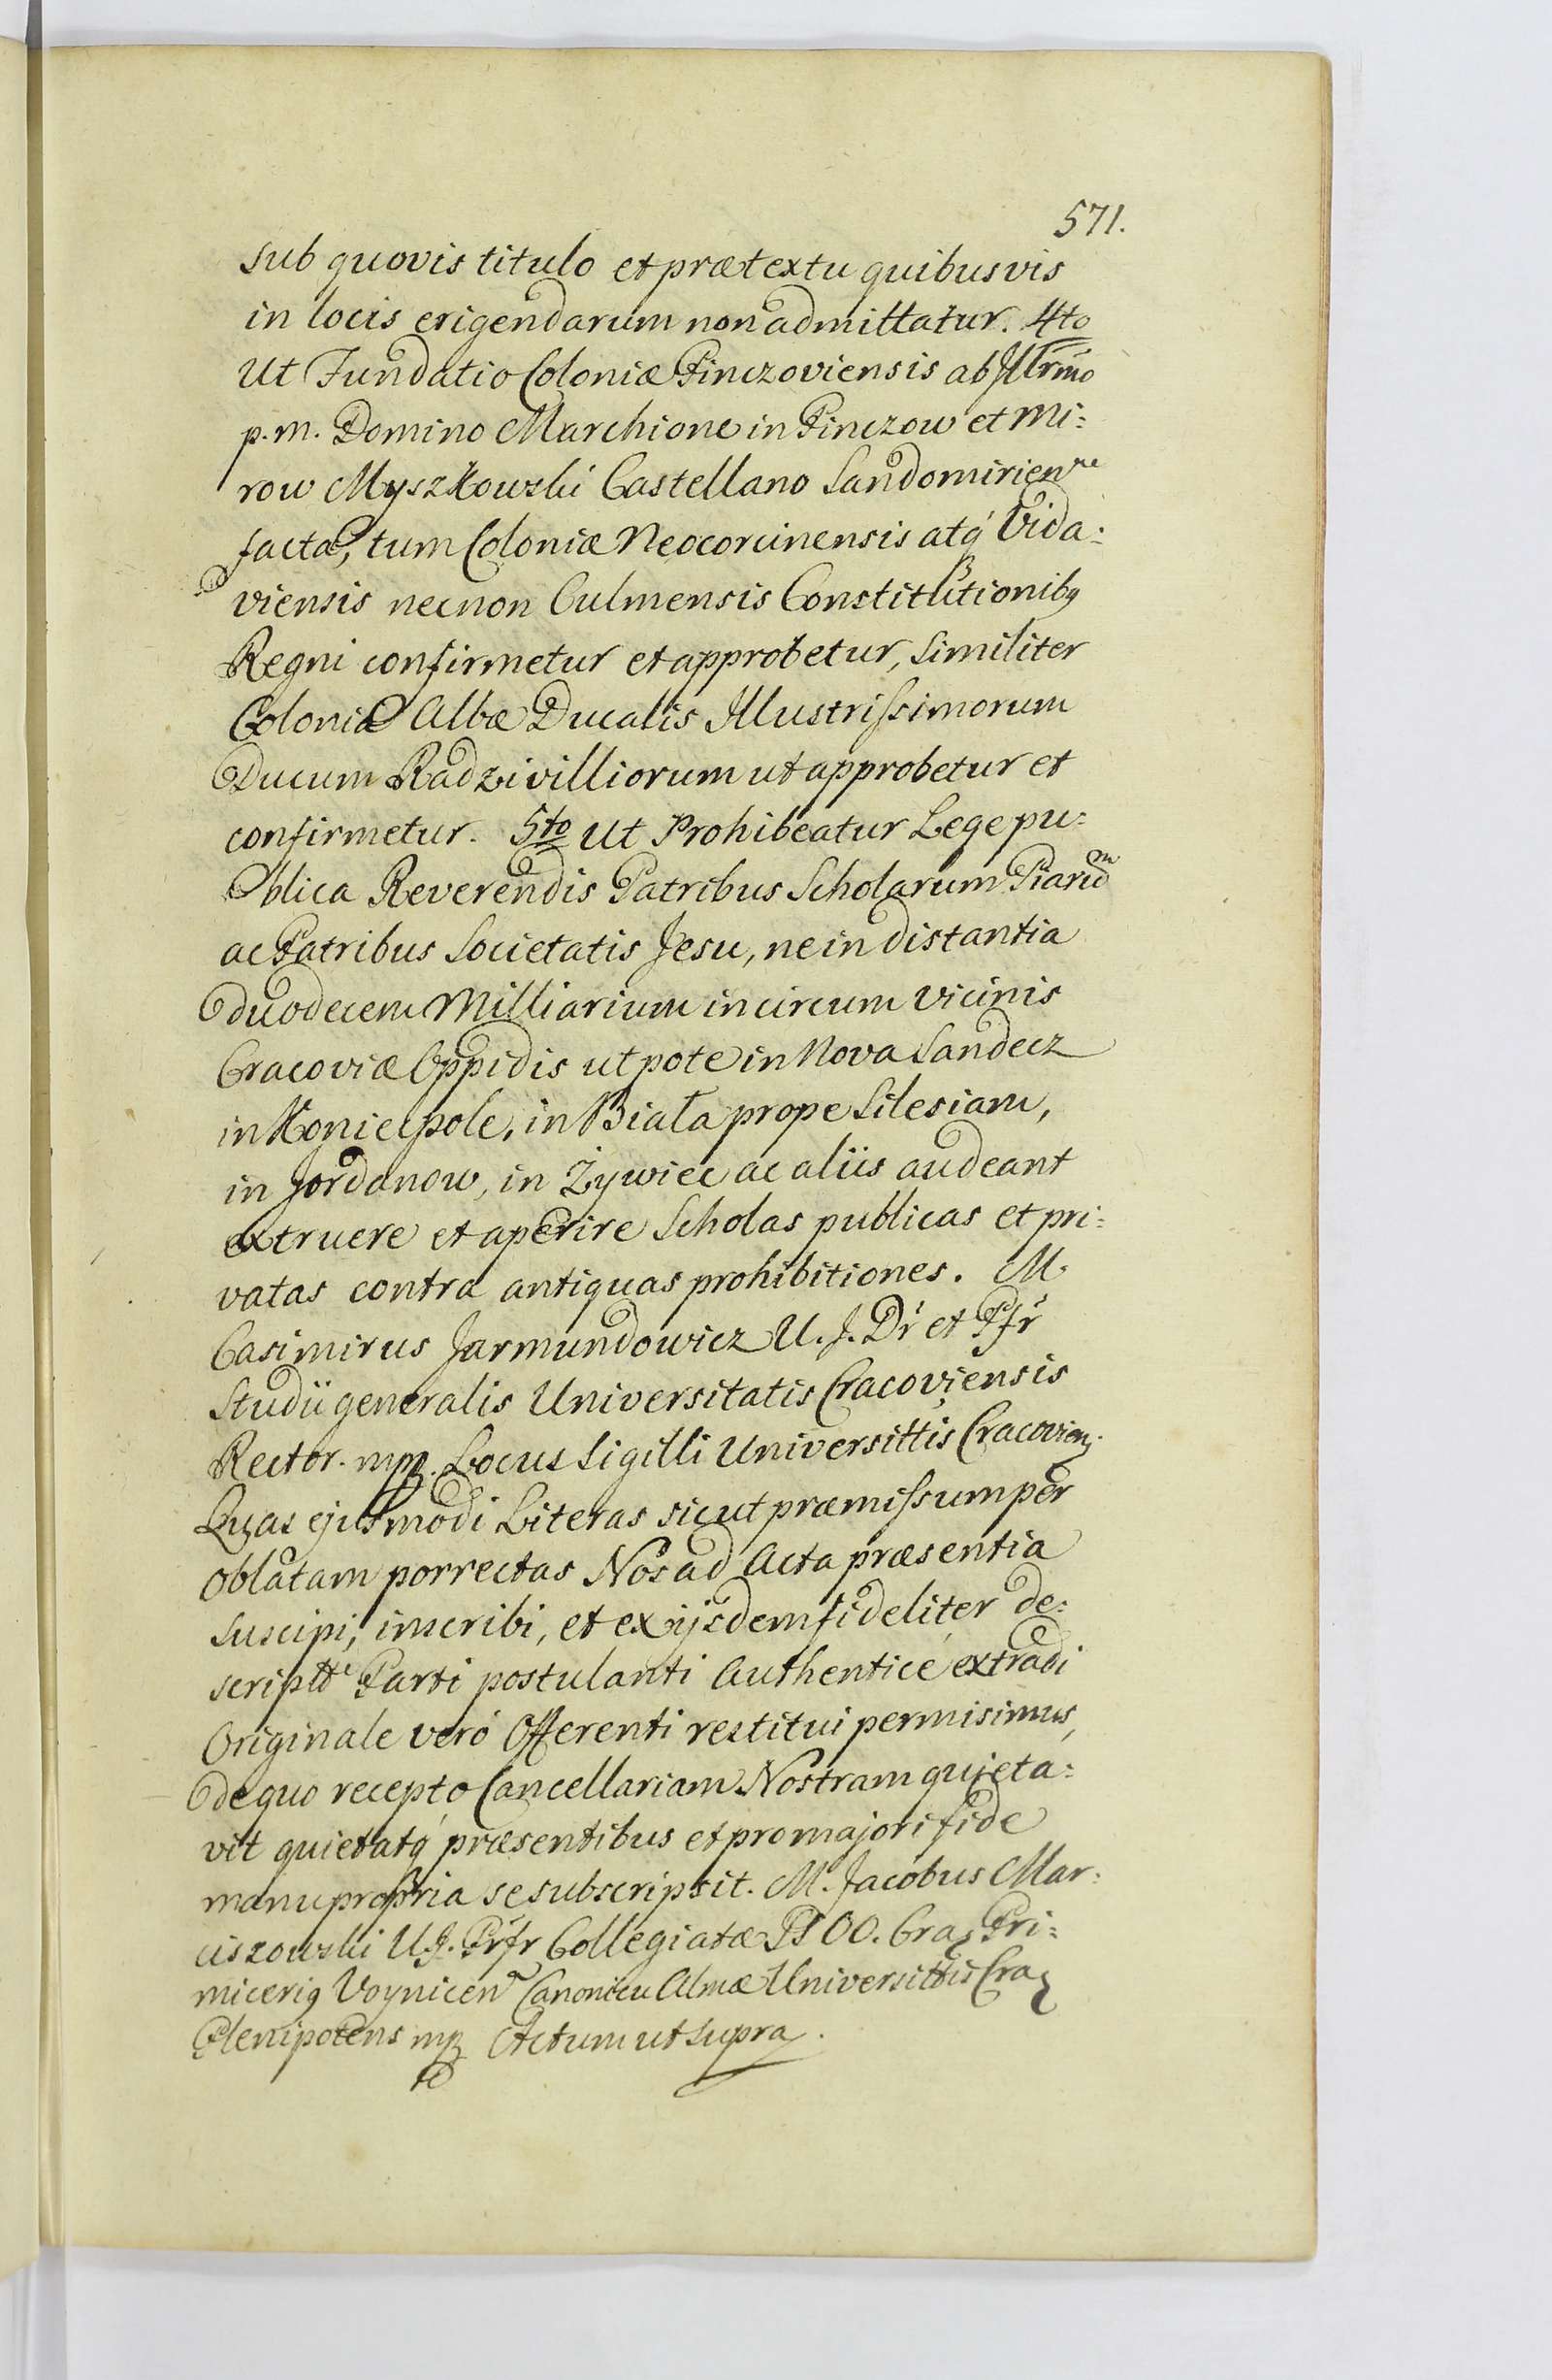 571.
sub quovis titulo et prætextu quibusvis
in locis erigendarum non admittatur. 4to
Ut Fundatio Coloniæ Pinczoviensis ab Illrmo
p. m. Domino Marchione in Pinczow et Mi:
row Myszkowski Castellano Sandomirienre
facta, tum Coloniæ Neocorcinensis atq́ Vida:
viensis necnon Culmensis Constitutionibq
Regni confirmetur et approbetur, Similiter
Colonia Albæ Ducalis Illustrissimorum
Ducum Radziwilliorum ut approbetur et
confirmetur. 5to Ut Prohibeatur Lege pu:
blica Reverendis Patribus Scholarum Piarum
ac Patribus Societatis Jesu, ne in distantia
duodecem Milliarium in circum vicinis
Cracoviæ Oppidis utpote in Nova Sandecz
in Koniecpole, in Biała prope Silesiam,
in Jordanow, in Żywiec ac aliis audeant
extruere et aperire Scholas publicas et pri:
vatas contra antiquas prohibitiones. M.
Casimirus Jarmundowicz U. J. Dr et Pfr
Studii generalis Universitatis Cracoviensis
Rector. mpp. Locus Sigilli Universittis Cracovien.
Quas ejusmodi Literas sicut præmissum per
oblatam porrectas Nos ad Acta præsentia
suscipi, inscribi, et ex ijsdem fideliter de:
scriptte Parti postulanti Authenticé extradi
Originale veró Offerenti restitui permisimus,
de quo recepto Cancellariam Nostram quieta:
vit quietatq́ præsentibus et pro majori fide
manu propria se subscripsit. M. Jacobus Mar:
ciszowski U. J. Prfr Collegiatæ SS OO. Cra. Pri:
micerig Voynicen Canonicu Almæ Universittis Cra.
Plenipotens mp Actum ut supra.